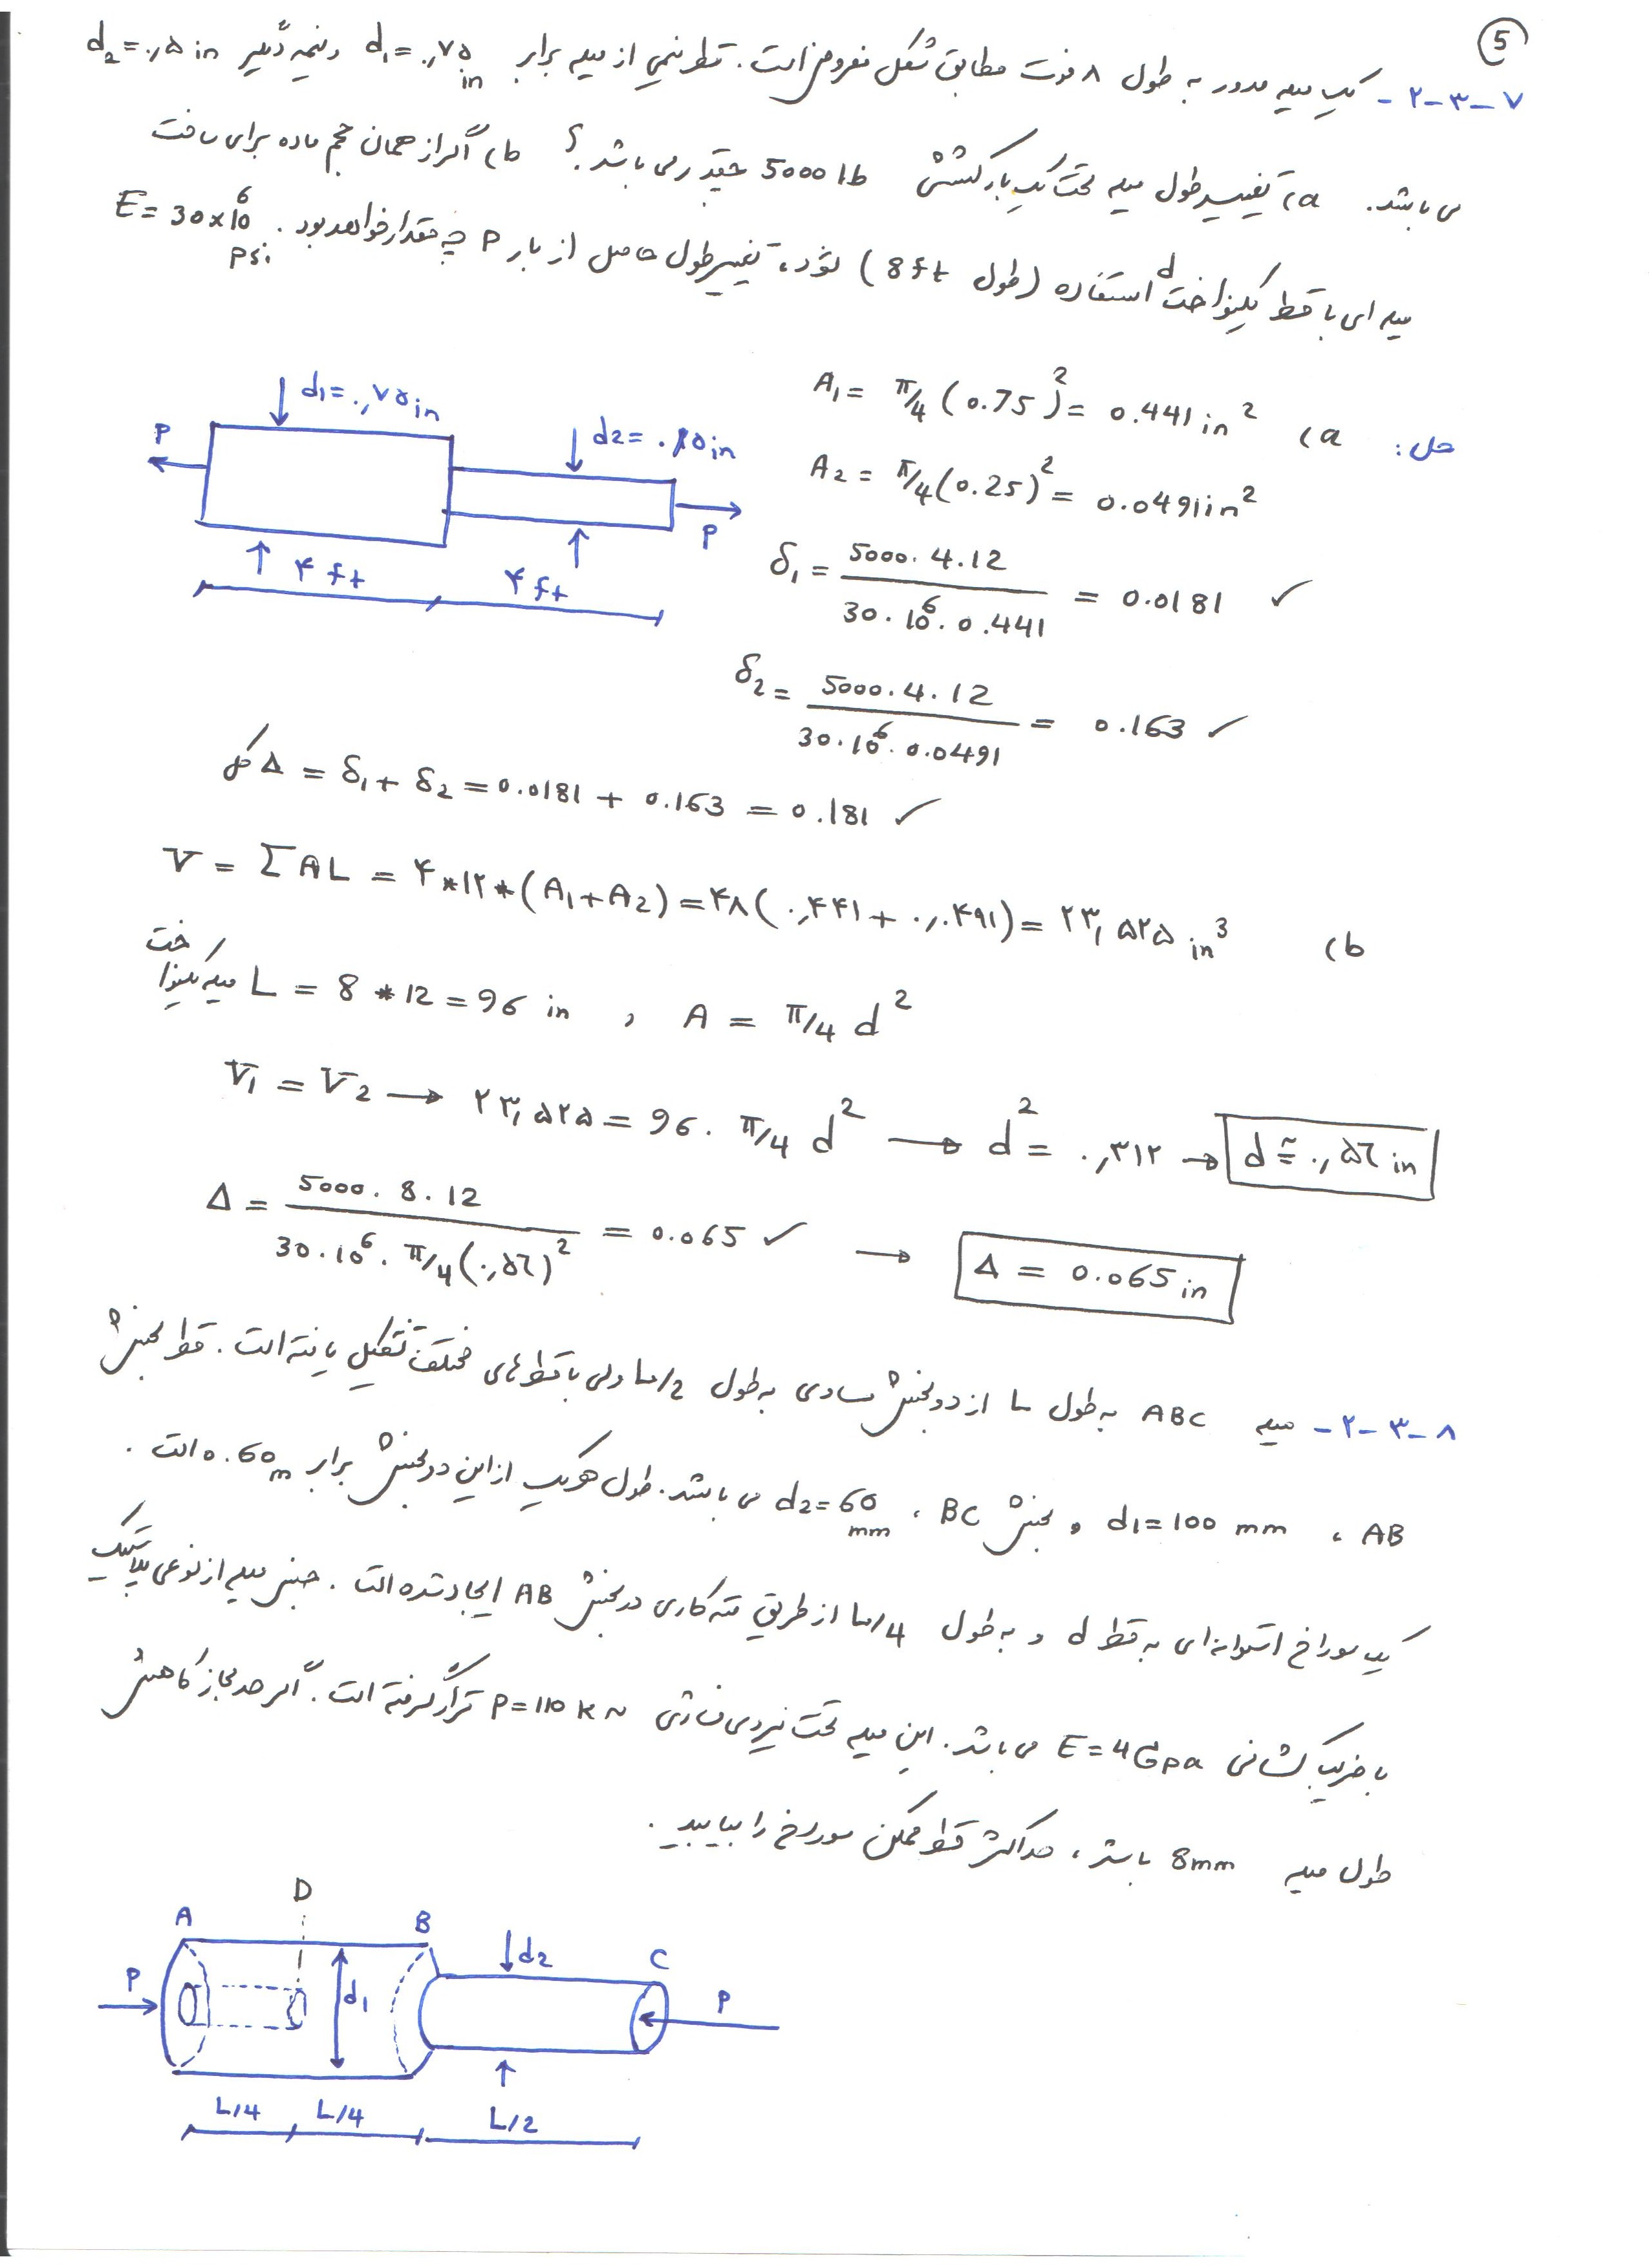 5
۲-۳-۷- یک میله مدور به طول ۸ فوت مطابق شکل مفروض است. قطر نیمی از میله برابر d₁=۰٫۷۵ in و نیمه دیگر d₂=۰٫۵ in
می باشد. a) تغییر طول میله تحت یک بار کششی 5000 lb چقدر می باشد.؟ b) اگر از همان حجم ماده برای ساخت
میله ای با قطر یکنواخت d استفاده (طول 8ft) شود، تغییر طول حاصل از بار P چه مقدار خواهد بود. E=30×10⁶ psi
حل: a) A₁= π/4 (0.75)²= 0.441 in²
A₂= π/4 (0.25)²= 0.0491 in²
d₁=۰٫۷۵ in
d₂=۰٫۵ in
P
P
۴ ft
۴ ft
δ₁= 5000.4.12 / 30.10⁶.0.441 = 0.0181 ✓
δ₂= 5000.4.12 / 30.10⁶.0.0491 = 0.163 ✓
Δ کل = δ₁+ δ₂ =0.0181 + 0.163 = 0.181 ✓
b) V = ΣAL = ۴*۱۲*(A₁+A₂)=۴۸(۰٫۴۴۱+۰٫۰۴۹۱)=۲۳٫۵۲۵ in³
میله یکنواخت L = 8*12=96 in , A = π/4 d²
V₁ = V₂ → ۲۳٫۵۲۵=96. π/4 d² → d²= ۰٫۳۱۲ → d≅۰٫۵۶ in
Δ= 5000.8.12 / 30.10⁶.π/4(۰٫۵۶)² = 0.065 ✓ → Δ = 0.065 in
۲-۳-۸- میله ABC به طول L از دو بخش مساوی به طول L/2 ولی با قطرهای مختلف تشکیل یافته است. قطر بخش
AB، d₁=100 mm و بخش BC، d₂=60 mm می باشد. طول هر یک از این دو بخش برابر 0.60 m است.
یک سوراخ استوانه ای به قطر d و به طول L/4 از طریق مته کاری در بخش AB ایجاد شده است. جنس میله از نوعی پلاستیک
با ضریب کشسانی E=4Gpa می باشد. این میله تحت نیروی فشاری P=110 kN قرار گرفته است. اگر حد مجاز کاهش
طول میله 8mm باشد، حداکثر قطر ممکن سوراخ را بیابید.
A
D
B
C
P
d₁
d₂
P
L/4
L/4
L/2